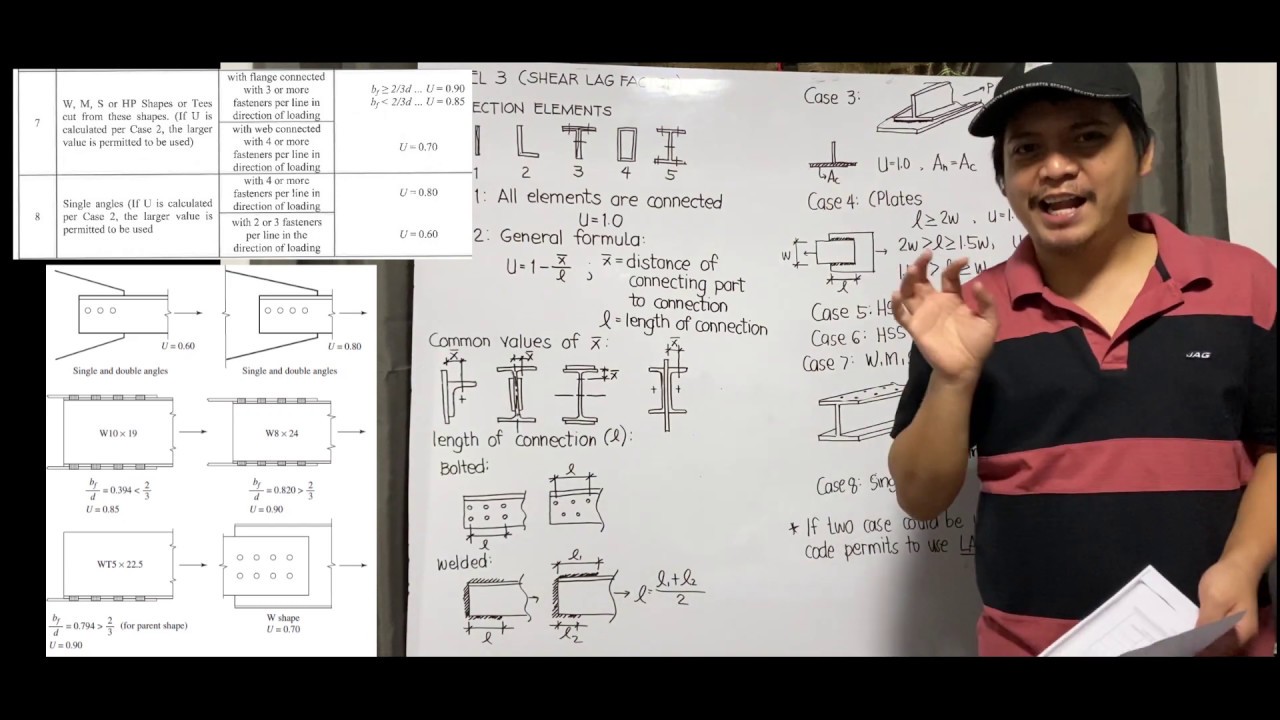 7
W, M, S or HP Shapes or Tees
cut from these shapes. (If U is
calculated per Case 2, the larger
value is permitted to be used)
with flange connected
with 3 or more
fasteners per line in
direction of loading
bf ≥ 2/3d ... U = 0.90
bf < 2/3d ... U = 0.85
with web connected
with 4 or more
fasteners per line in
direction of loading
U = 0.70
8
Single angles (If U is calculated
per Case 2, the larger value is
permitted to be used
with 4 or more
fasteners per line in
direction of loading
U = 0.80
with 2 or 3 fasteners
per line in the
direction of loading
U = 0.60
U = 0.60
Single and double angles
U = 0.80
Single and double angles
W10 × 19
bf/d = 0.394 < 2/3
U = 0.85
W8 × 24
bf/d = 0.820 > 2/3
U = 0.90
WT5 × 22.5
bf/d = 0.794 > 2/3 (for parent shape)
U = 0.90
W shape
U = 0.70
EL 3 (SHEAR LAG FAC
ECTION ELEMENTS
1 2 3 4 5
1: All elements are connected
U=1.0
2: General formula:
U = 1 - x̄/ℓ ; x̄ = distance of
connecting part
to connection
ℓ = length of connection
Common values of x̄:
x̄
x̄
x̄
x̄
length of connection (ℓ):
Bolted:
ℓ
ℓ
welded:
ℓ
ℓ1
ℓ2
ℓ = ℓ1+ℓ2/2
Case 3:
P
Ac
U=1.0 , An=Ac
Case 4: (Plates
ℓ ≥ 2w , U=1.
2w > ℓ ≥ 1.5w, U
> ℓ ≥ w
w
ℓ
Case 5: HS
Case 6: HSS
Case 7: W,M,
Case 8: Sing
* If two case could be
code permits to use LA
JAG